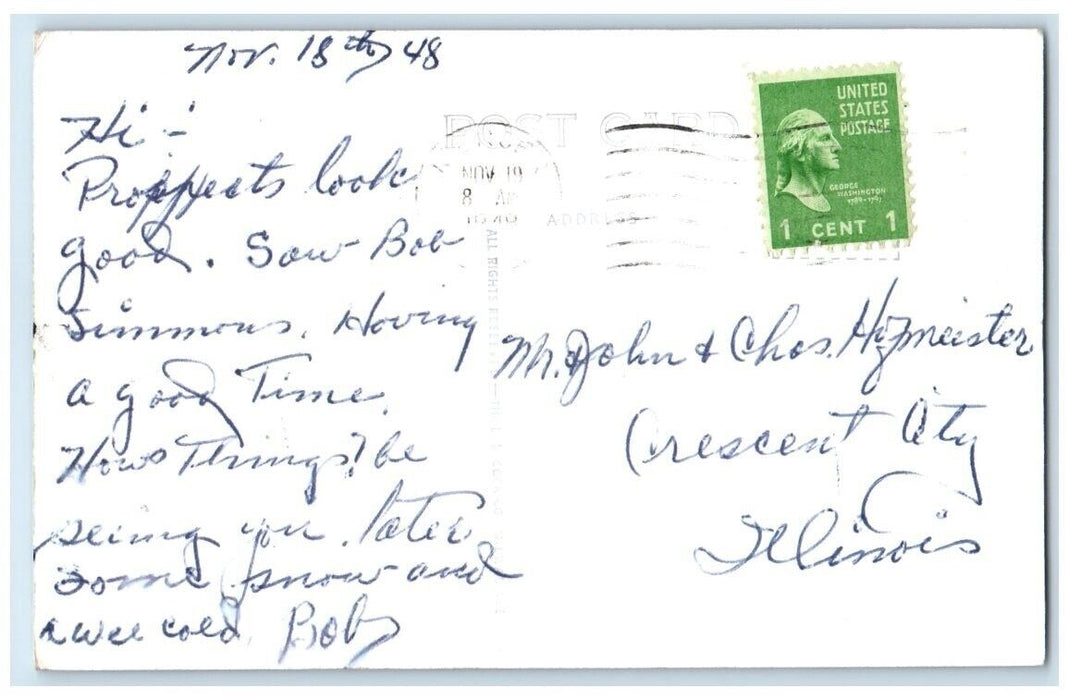 Nov. 18th, 48
Hi -
Prospects look
good. Saw Bob
Simmons. Having
a good Time.
Hows Things? be
seeing you. later
some snow and
a wee cold. Bob
POST CARD
NOV 19
8 AM
1948
ADDRESS
ALL RIGHTS
UNITED
STATES
POSTAGE
GEORGE
WASHINGTON
1789-1797
1 CENT 1
Mr. John & Chas. Hizmeister
Crescent City
Illinois